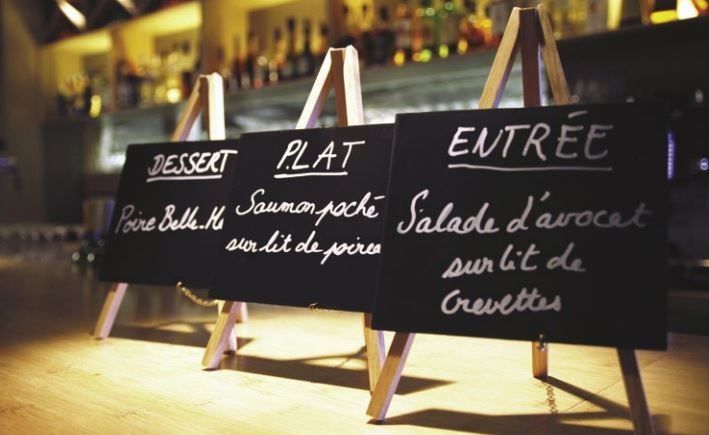 DESSERT
Poire Belle.
PLAT
Saumon poché
sur lit de
ENTRÉE
Salade d'avocat
sur lit de
Crevettes